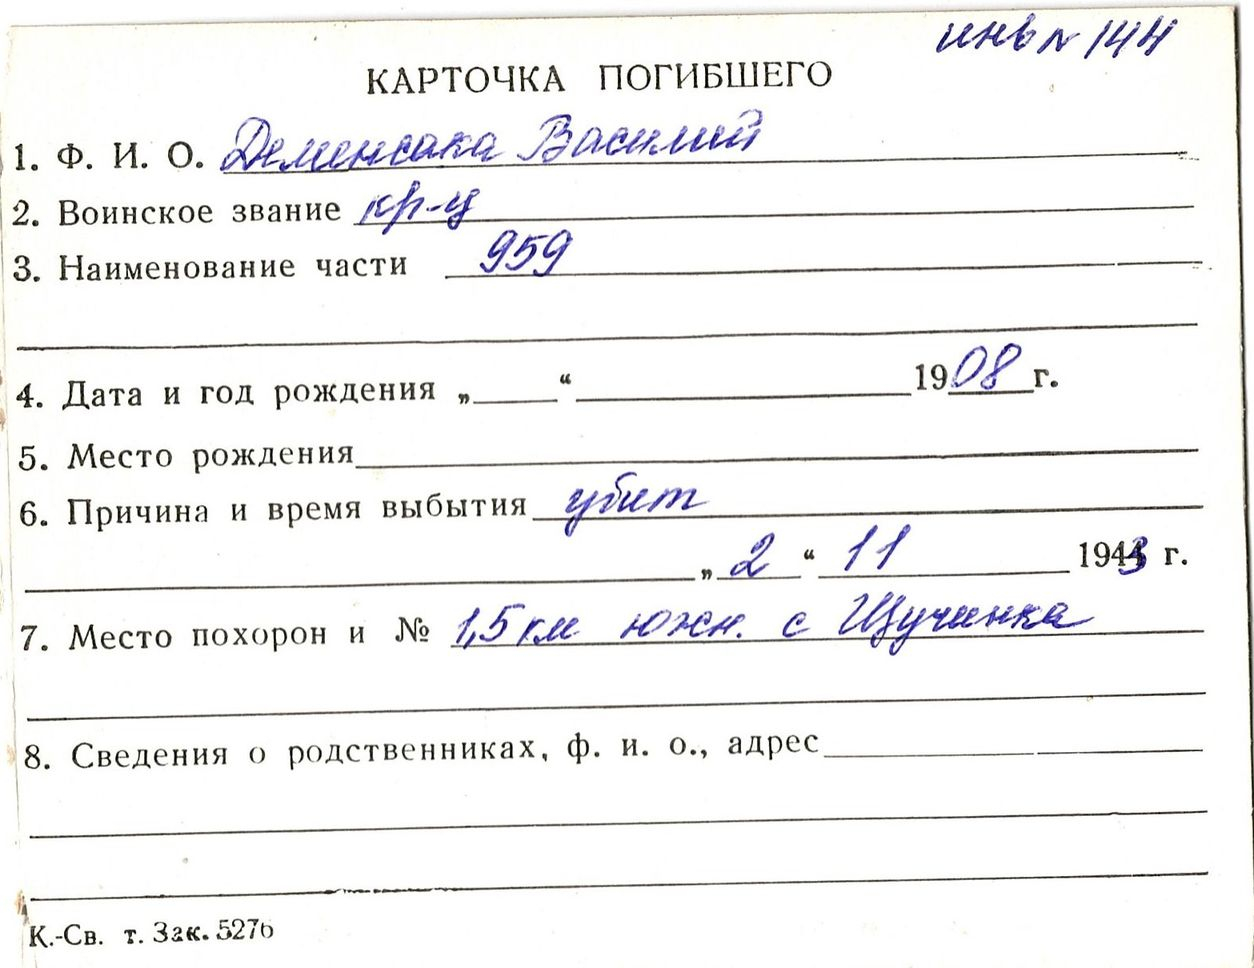 инв № 144
КАРТОЧКА ПОГИБШЕГО
1. Ф. И. О. Деменсака Василий
2. Воинское звание кр-ц
3. Наименование части 959
4. Дата и год рождения „ “ 1908 г.
5. Место рождения
6. Причина и время выбытия убит
„ 2 “ 11 1943 г.
7. Место похорон и № 1,5 км южн. с Щучинка
8. Сведения о родственниках, ф. и. о., адрес
К.-Св. т. Зак. 5276